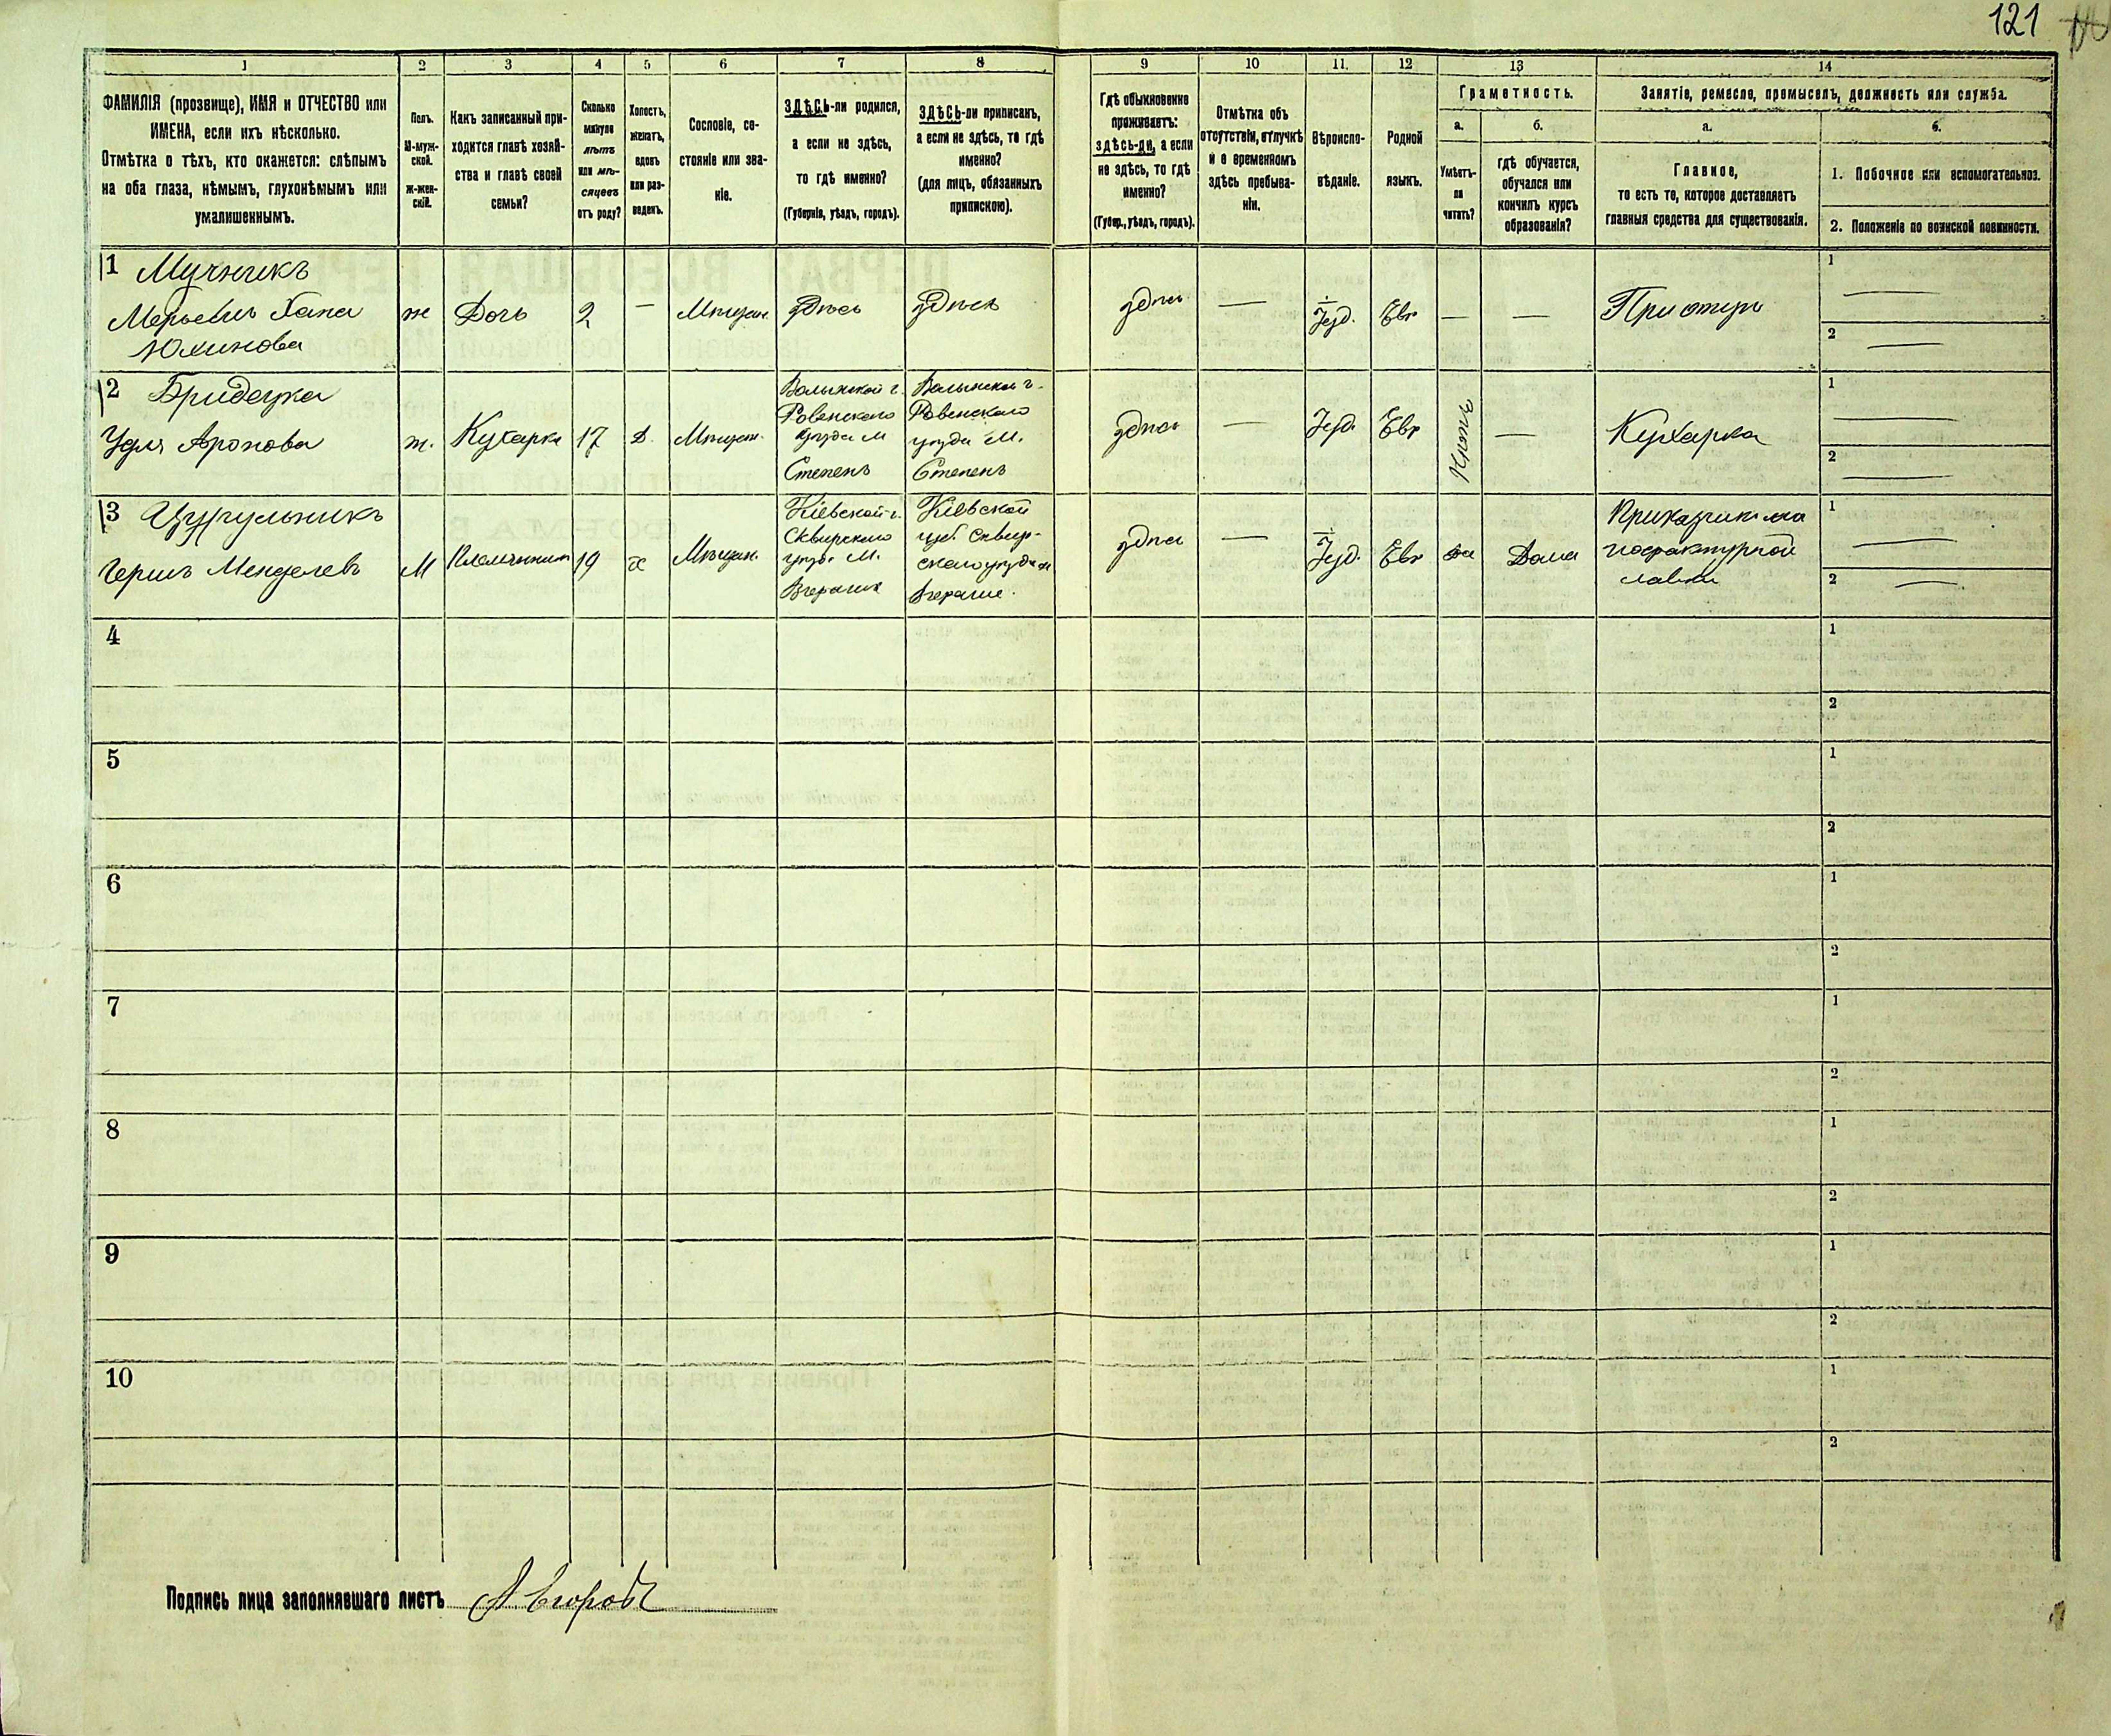 121
1 2 3 4 5 6 7 8 9 10 11. 12 13 14
ФАМИЛІЯ (прозвище), ИМЯ и ОТЧЕСТВО или
ИМЕНА, если ихъ нѣсколько.
Отмѣтка о тѣхъ, кто окажется: слѣпымъ
на оба глаза, нѣмымъ, глухонѣмымъ или
умалишеннымъ.
Полъ.
М-муж-
ской.
Ж-жен-
скій.
Какъ записанный при-
ходится главѣ хозяй-
ства и главѣ своей
семьи?
Сколько
минуло
лѣтъ
или мѣ-
сяцевъ
отъ роду?
Холостъ,
женатъ,
вдовъ
или раз-
веденъ.
Сословіе, со-
стояніе или зва-
ніе.
ЗДѢСЬ-ли родился,
а если не здѣсь,
то гдѣ именно?
(Губернія, уѣздъ, городъ).
ЗДѢСЬ-ли приписанъ,
а если не здѣсь, то гдѣ
именно?
(для лицъ, обязанныхъ
припискою).
Гдѣ обыкновенно
проживаетъ:
здѣсь-ли, а если
не здѣсь, то гдѣ
именно?
(Губер., уѣздъ, городъ).
Отмѣтка объ
отсутствіи, отлучкѣ
и о временномъ
здѣсь пребыва-
ніи.
Вѣроиспо-
вѣданіе.
Родной
языкъ.
Грамотность.
а.
Умѣетъ-
ли
читать?
б.
гдѣ обучается,
обучался или
кончилъ курсъ
образованія?
Занятіе, ремесло, промыселъ, должность или служба.
а.
Главное,
то есть то, которое доставляетъ
главныя средства для существованія.
б.
1. Побочное или вспомогательное.
2. Положеніе по воинской повинности.
1 Мучникъ
Хана
ж Дочь 2 — Мѣщан. здѣсь здѣсь здѣсь — Іуд. Евр — — При отцѣ
1 —
2 —
2
Аронова
ж. Кухарка 17 Д. Мѣщан.
Волынской г.
Ровенскаго
уѣзда М
Степень
Волынской г.
Ровенскаго
уѣзда М.
Степень
здѣсь — Іуд. Евр нѣтъ — Кухарка
1 —
2 —
3 Цурульникъ
Гершъ Менделевъ
М Племянник 19 х Мѣщан.
Кіевской г.
Сквирскаго
уѣзд. М.
Кіевской
губ. Сквир-
скаго уѣзда м
здѣсь — Іуд. Евр да Дома
Приказчик на
лавки
1 —
2 —
4 1
2
5 1
2
6 1
2
7 1
2
8 1
2
9 1
2
10 1
2
Подпись лица заполнявшаго листъ